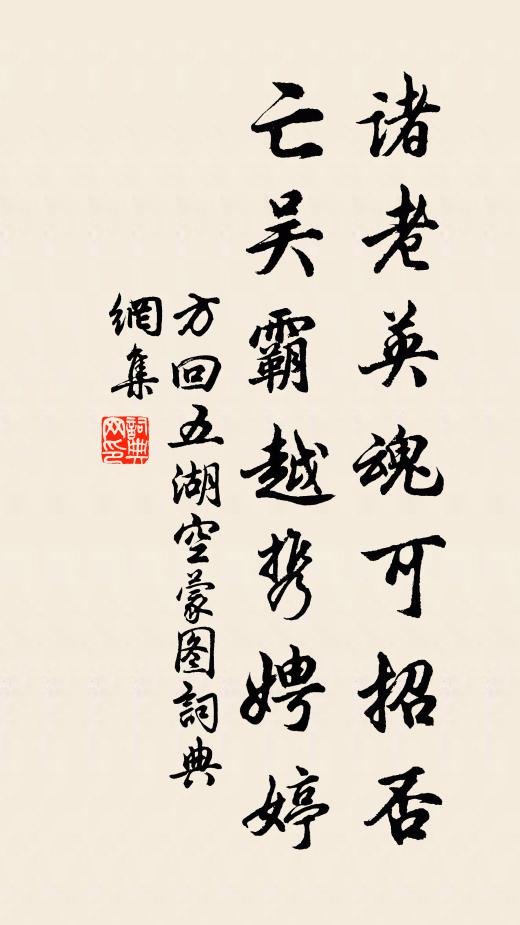 诸老英魂可招否
亡吴霸越携娉婷
方回五湖空蒙图詞典
網集
詞典
网印